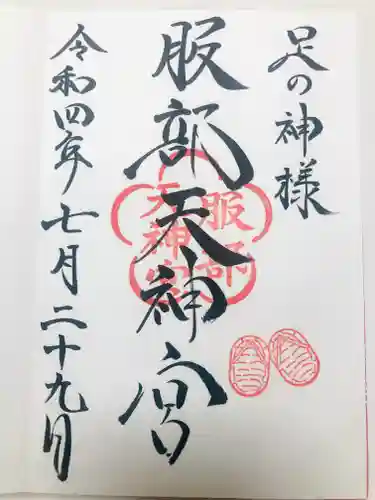 足の神様
服部天神宮
令和四年七月二十九日
服部
天神宮